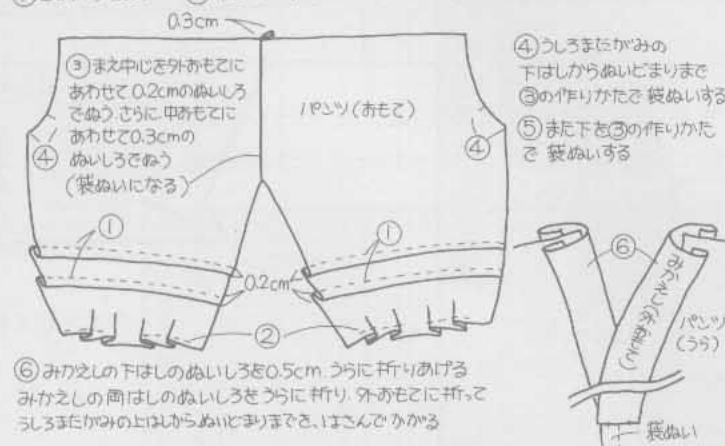 0.3cm
③まえ中心を外おもてに
あわせて0.2cmのぬいしろ
でぬう.さらに、中おもてに
あわせて0.3cmの
ぬいしろでぬう
(袋ぬいになる)
④
パンツ(おもて)
④
④うしろまたがみの
下はしからぬいどまりまで
③の作りかたで袋ぬいする
⑤また下を③の作りかた
で袋ぬいする
①
①
0.2cm
②
⑥
みかえし(外おもて)
パンツ
(うら)
袋ぬい
⑥みかえしの下はしのぬいしろを0.5cm うらに折りあげる
みかえしの両はしのぬいしろをうらに折り、外おもてに折って
うしろまたがみの上はしからぬいどまりまでを、はさんでかがる